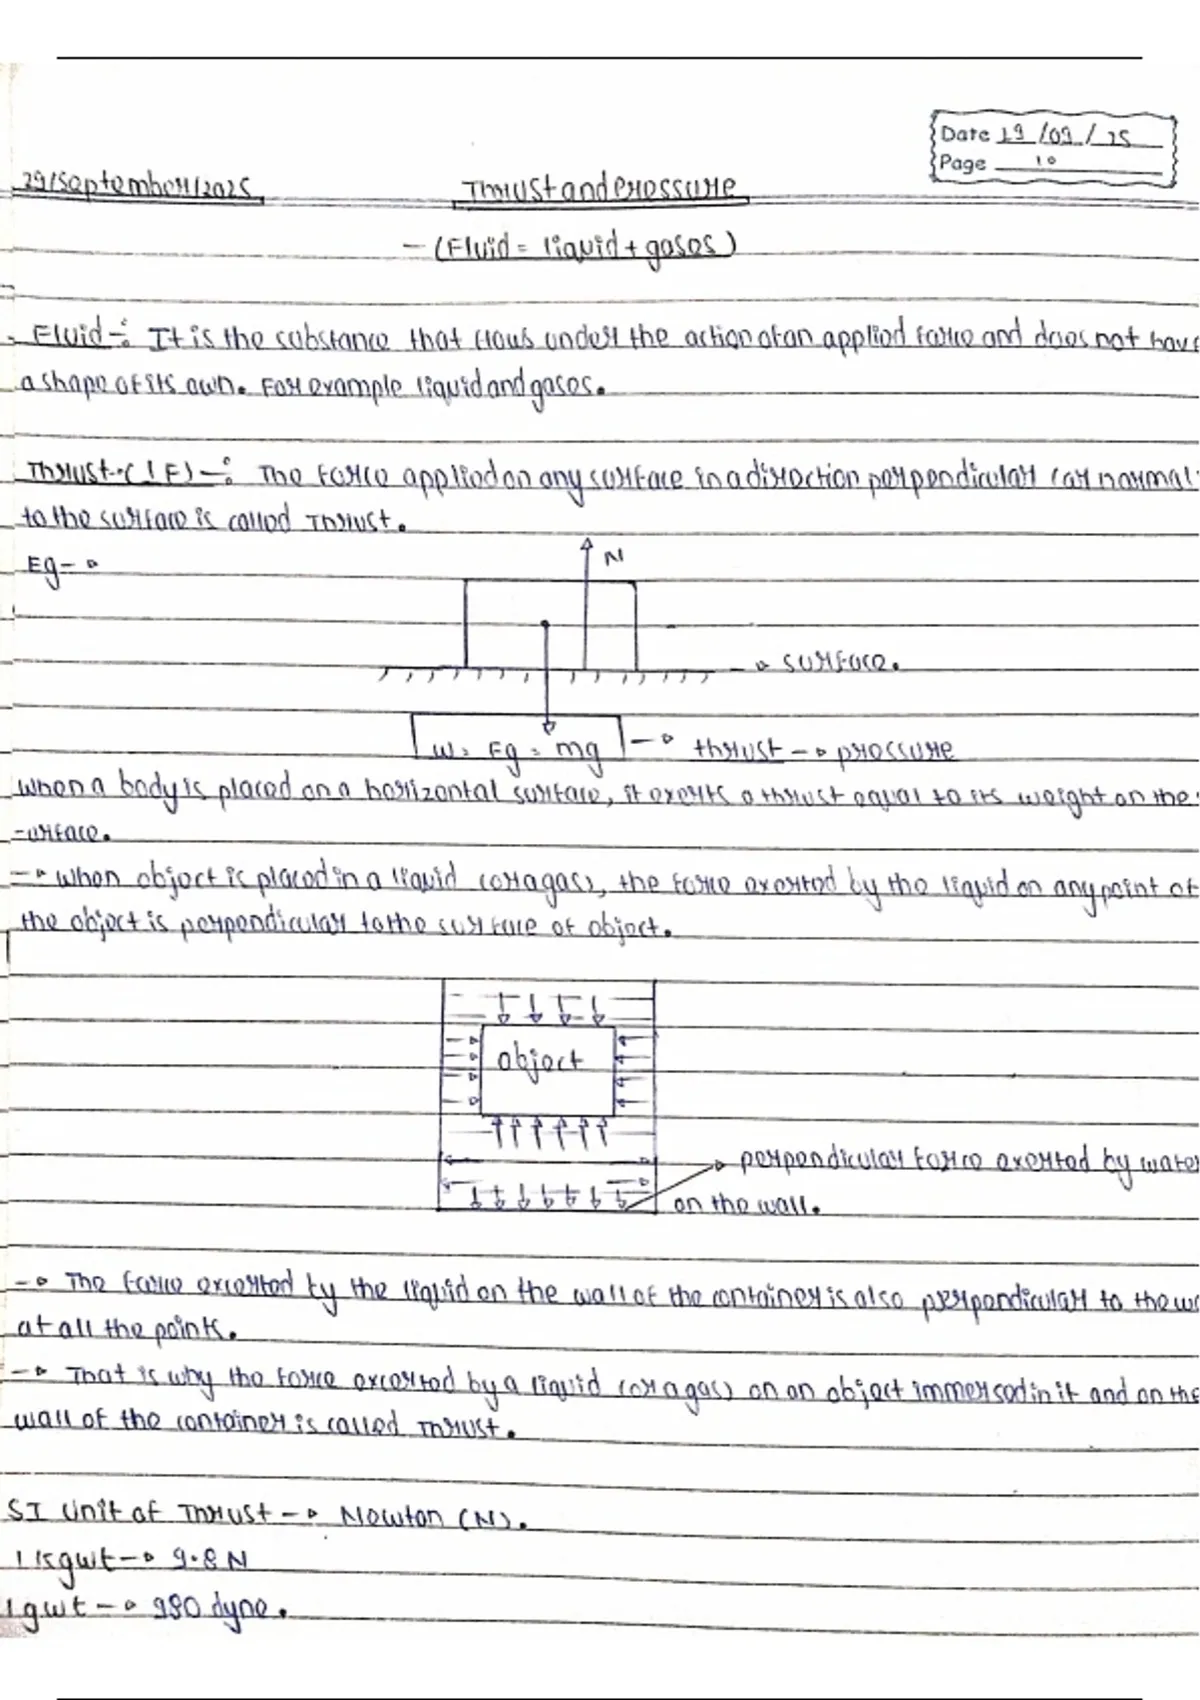 Date 29/09/25
Page 10
29/September/2025
Thrust and Pressure
- (Fluid = liquid + gases)
Fluid -: It is the substance that flows under the action of an applied force and does not have
a shape of its own. For example liquid and gases.
Thrust (F) -: The force applied on any surface in a direction perpendicular (or normal
to the surface is called Thrust.
Eg-
N
surface.
W = Fg = mg
thrust - pressure
When a body is placed on a horizontal surface, it exerts a thrust equal to its weight on the
-urface.
- When object is placed in a liquid (or a gas), the force exerted by the liquid on any point of
the object is perpendicular to the surface of object.
object
perpendicular force exerted by water
on the wall.
- The force excerted by the liquid on the wall of the container is also perpendicular to the
at all the points.
- That is why the force excerted by a liquid (or a gas) on an object immersed in it and on the
wall of the container is called Thrust.
SI Unit of Thrust - Newton (N).
1 kgwt - 9.8 N
1 gwt - 980 dyne.